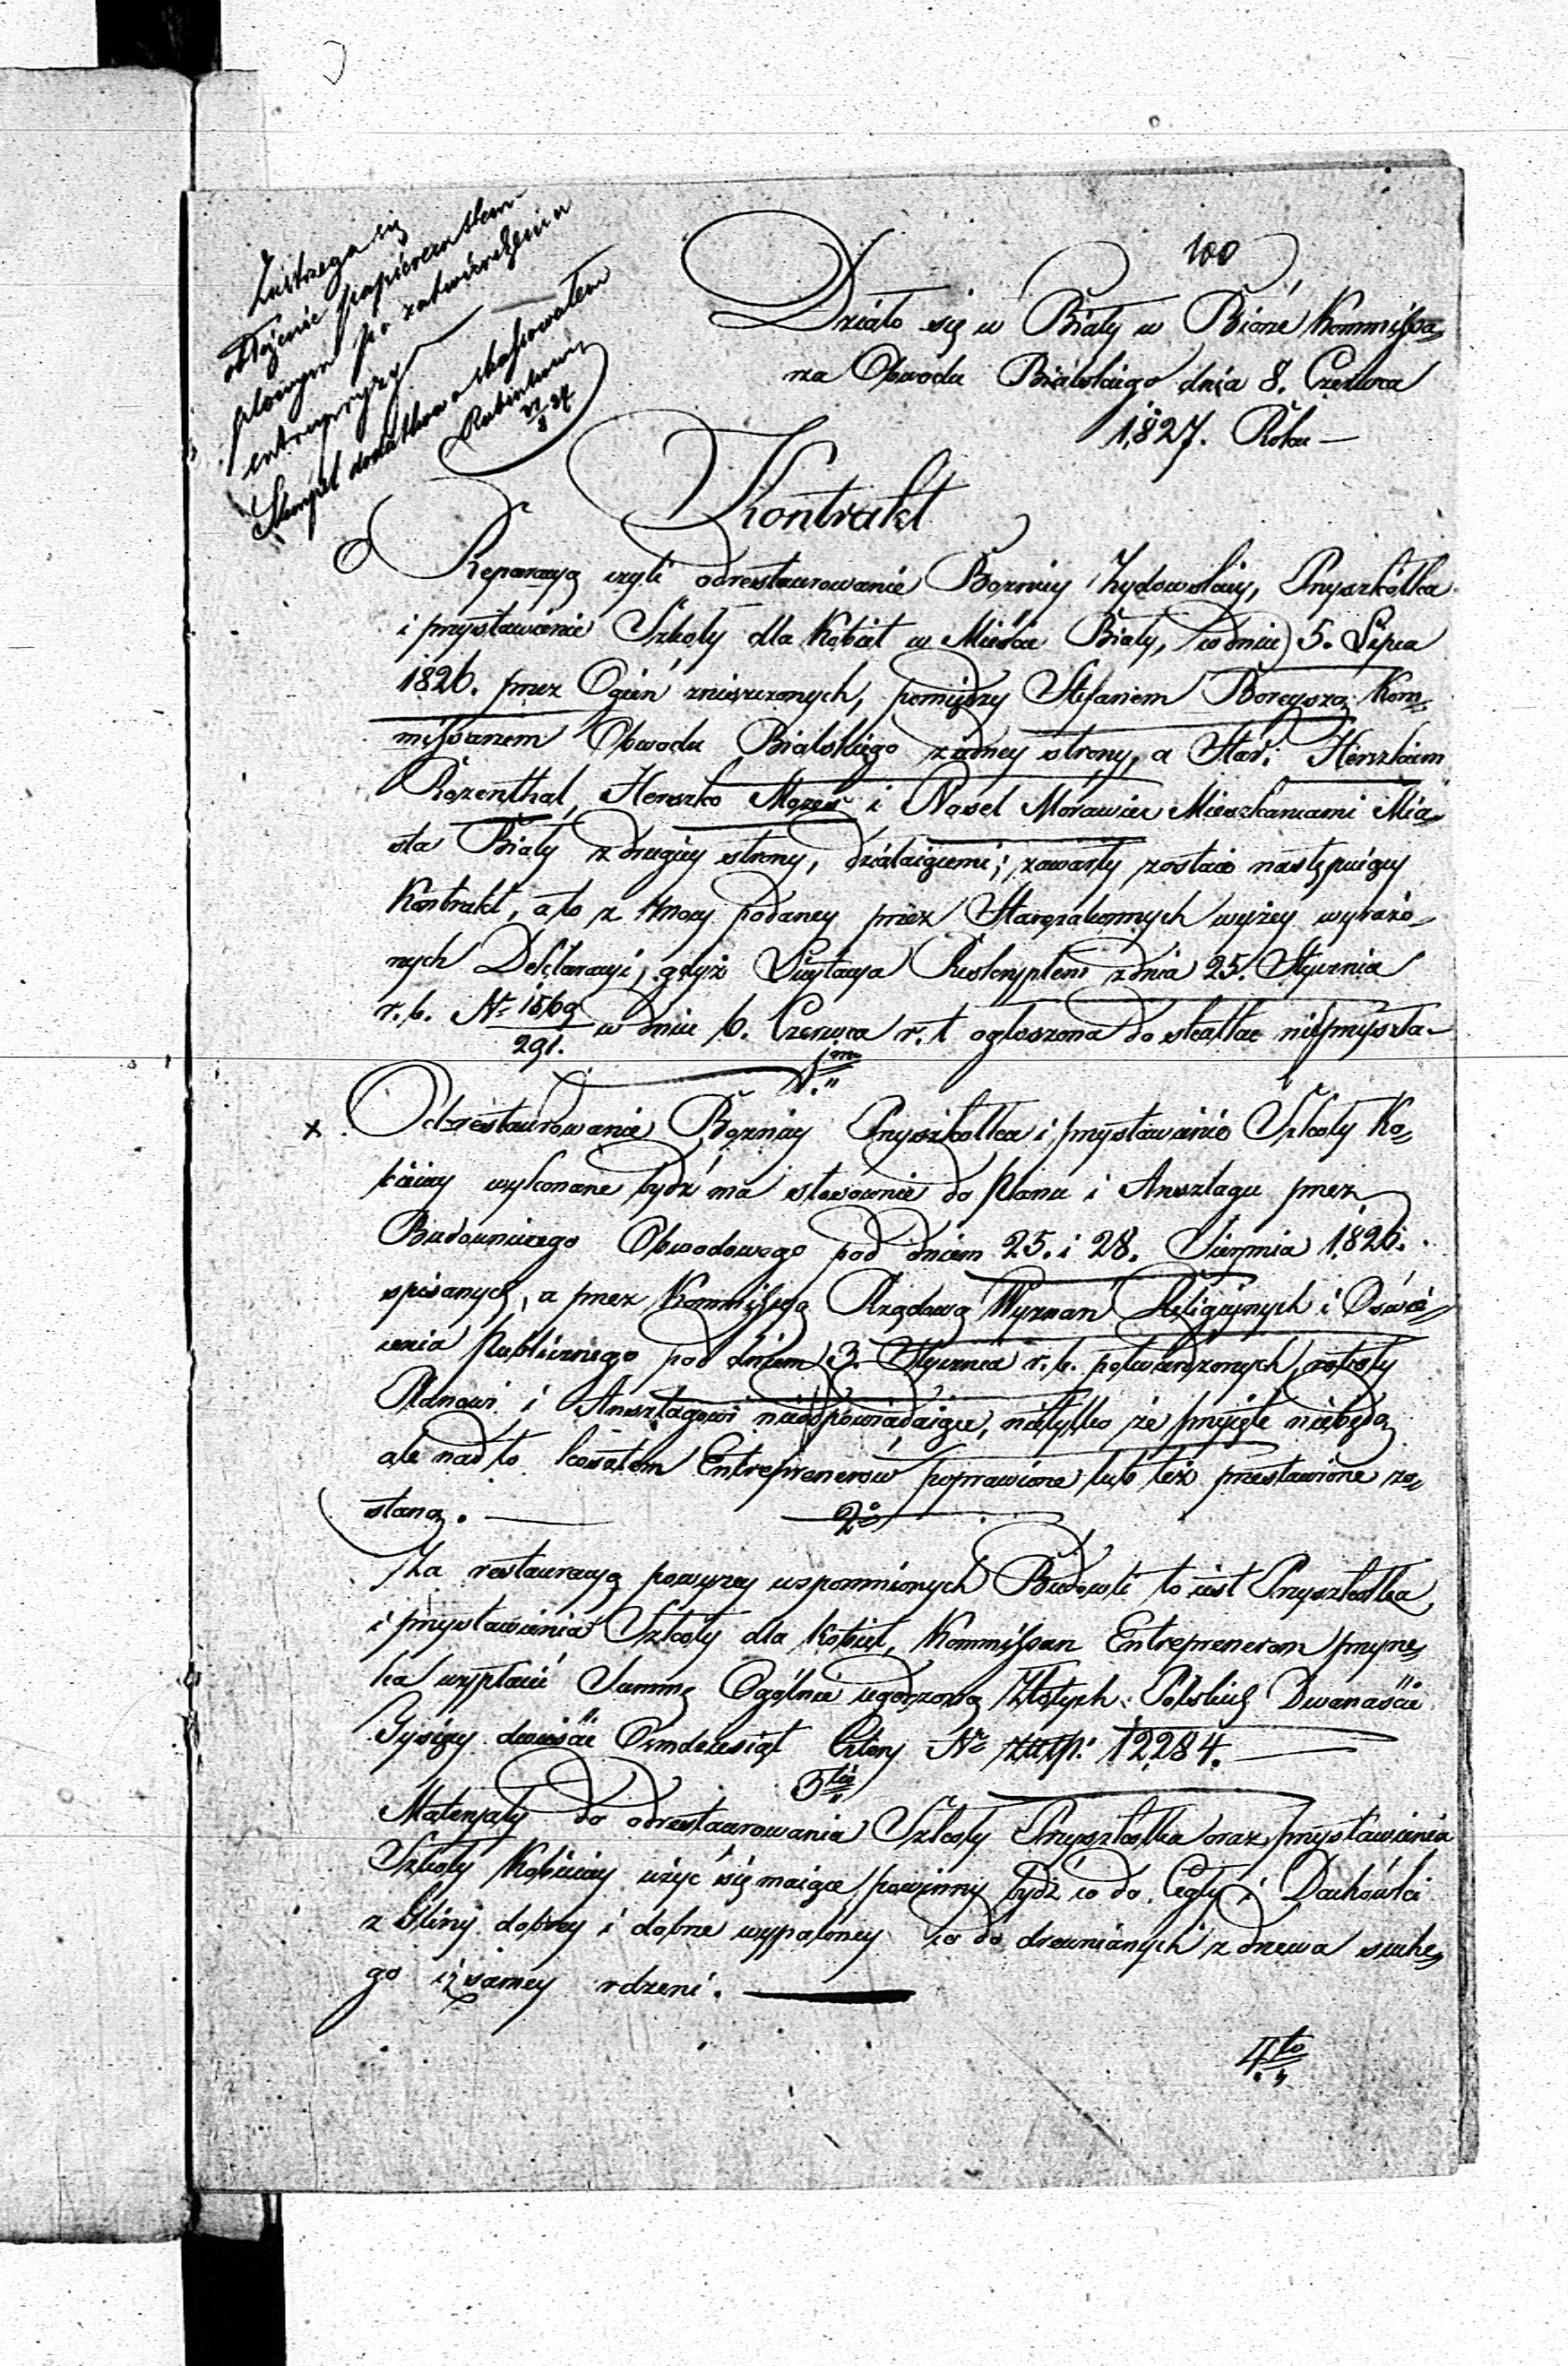 100
Zastrzega się
ołożenie papierem stem-
plowym po zatwierdzeniu
entrepryzy
Stempel dodatkowo skassowałem
Działo się w Biały w Biórze Kommissa„
rza Obwodu Bialskiego dnia 8. Czerwca
1827. Roku —
Kontrakt
O Reparacyą czyli odrestaurowanie Bożnicy Żydowskiey, Przyszkółka
i przystawienie Szkoły dla Kobiet w Mieście Biały, w dniu 5. Lipca
1826. przez Ogień zniszczonych, pomiędzy Stefanem Borcyszą Kom„
missarzem Obwodu Bialskiego z iedney strony, a Star: Herszkiem
Rozenthal, Herszko Mozes i Nosel Morawiec Mieszkancami Mia„
sta Biały z drugiey strony, działaiącemi; zawarty zostaie następuiący
Kontrakt, a to z mocy podaney przez Starozakonnych wyżey wyrażo„
nych Deklaracyi, gdyż Licytacya Reskryptem z dnia 25. Stycznia
r. b. Nr 1569/291. w dniu 6. Czerwca r. t ogłoszona do skutku nieprzyszła—
1mo
x Odrestaurowanie Bożnicy Przyszkółka i przystawienie Szkoły Ko„
biécey wykonane bydź ma stosownie do Planu i Anszlagu przez
Budowniczego Obwodowego pod dniem 25. i 28. Sierpnia 1826.
spisanych, a przez Kommissyą Rządową Wyznań Religiynych i Oświe„
cenia Publicznego pod dniem 3. Stycznia r. b. potwierdzonych, roboty
Planowi i Anszlagowi nieodpowiadaiące, nietylko że przyięte niebędą
ale nad to kosztem Entreprenerów poprawione lub też przestawione zo„
staną. —
2o
Za restauracyą powyżey wspomnionych Budowli to iest Przyszkółka
i przystawienia Szkoły dla Kobiet, Kommissarz Entreprenerom przyrze„
ka wypłacić Summę Ogólnie ugodzoną Złotych Polskich Dwanaście
Tysięcy dwieście Ośmdziesiąt Cztery Nr złłp: 12,284. —
3tio
Materyały do odrestaurowania Szkoły Przyszkółka oraz przystawienia
Szkoły Kobiécey użyć się maiące powinny bydź co do Cegły i Dachówki
z Gliny dobrey i dobrze wypaloney co do drewnianych z drzewa suche„
go iżsamey rdzeni. —
4to